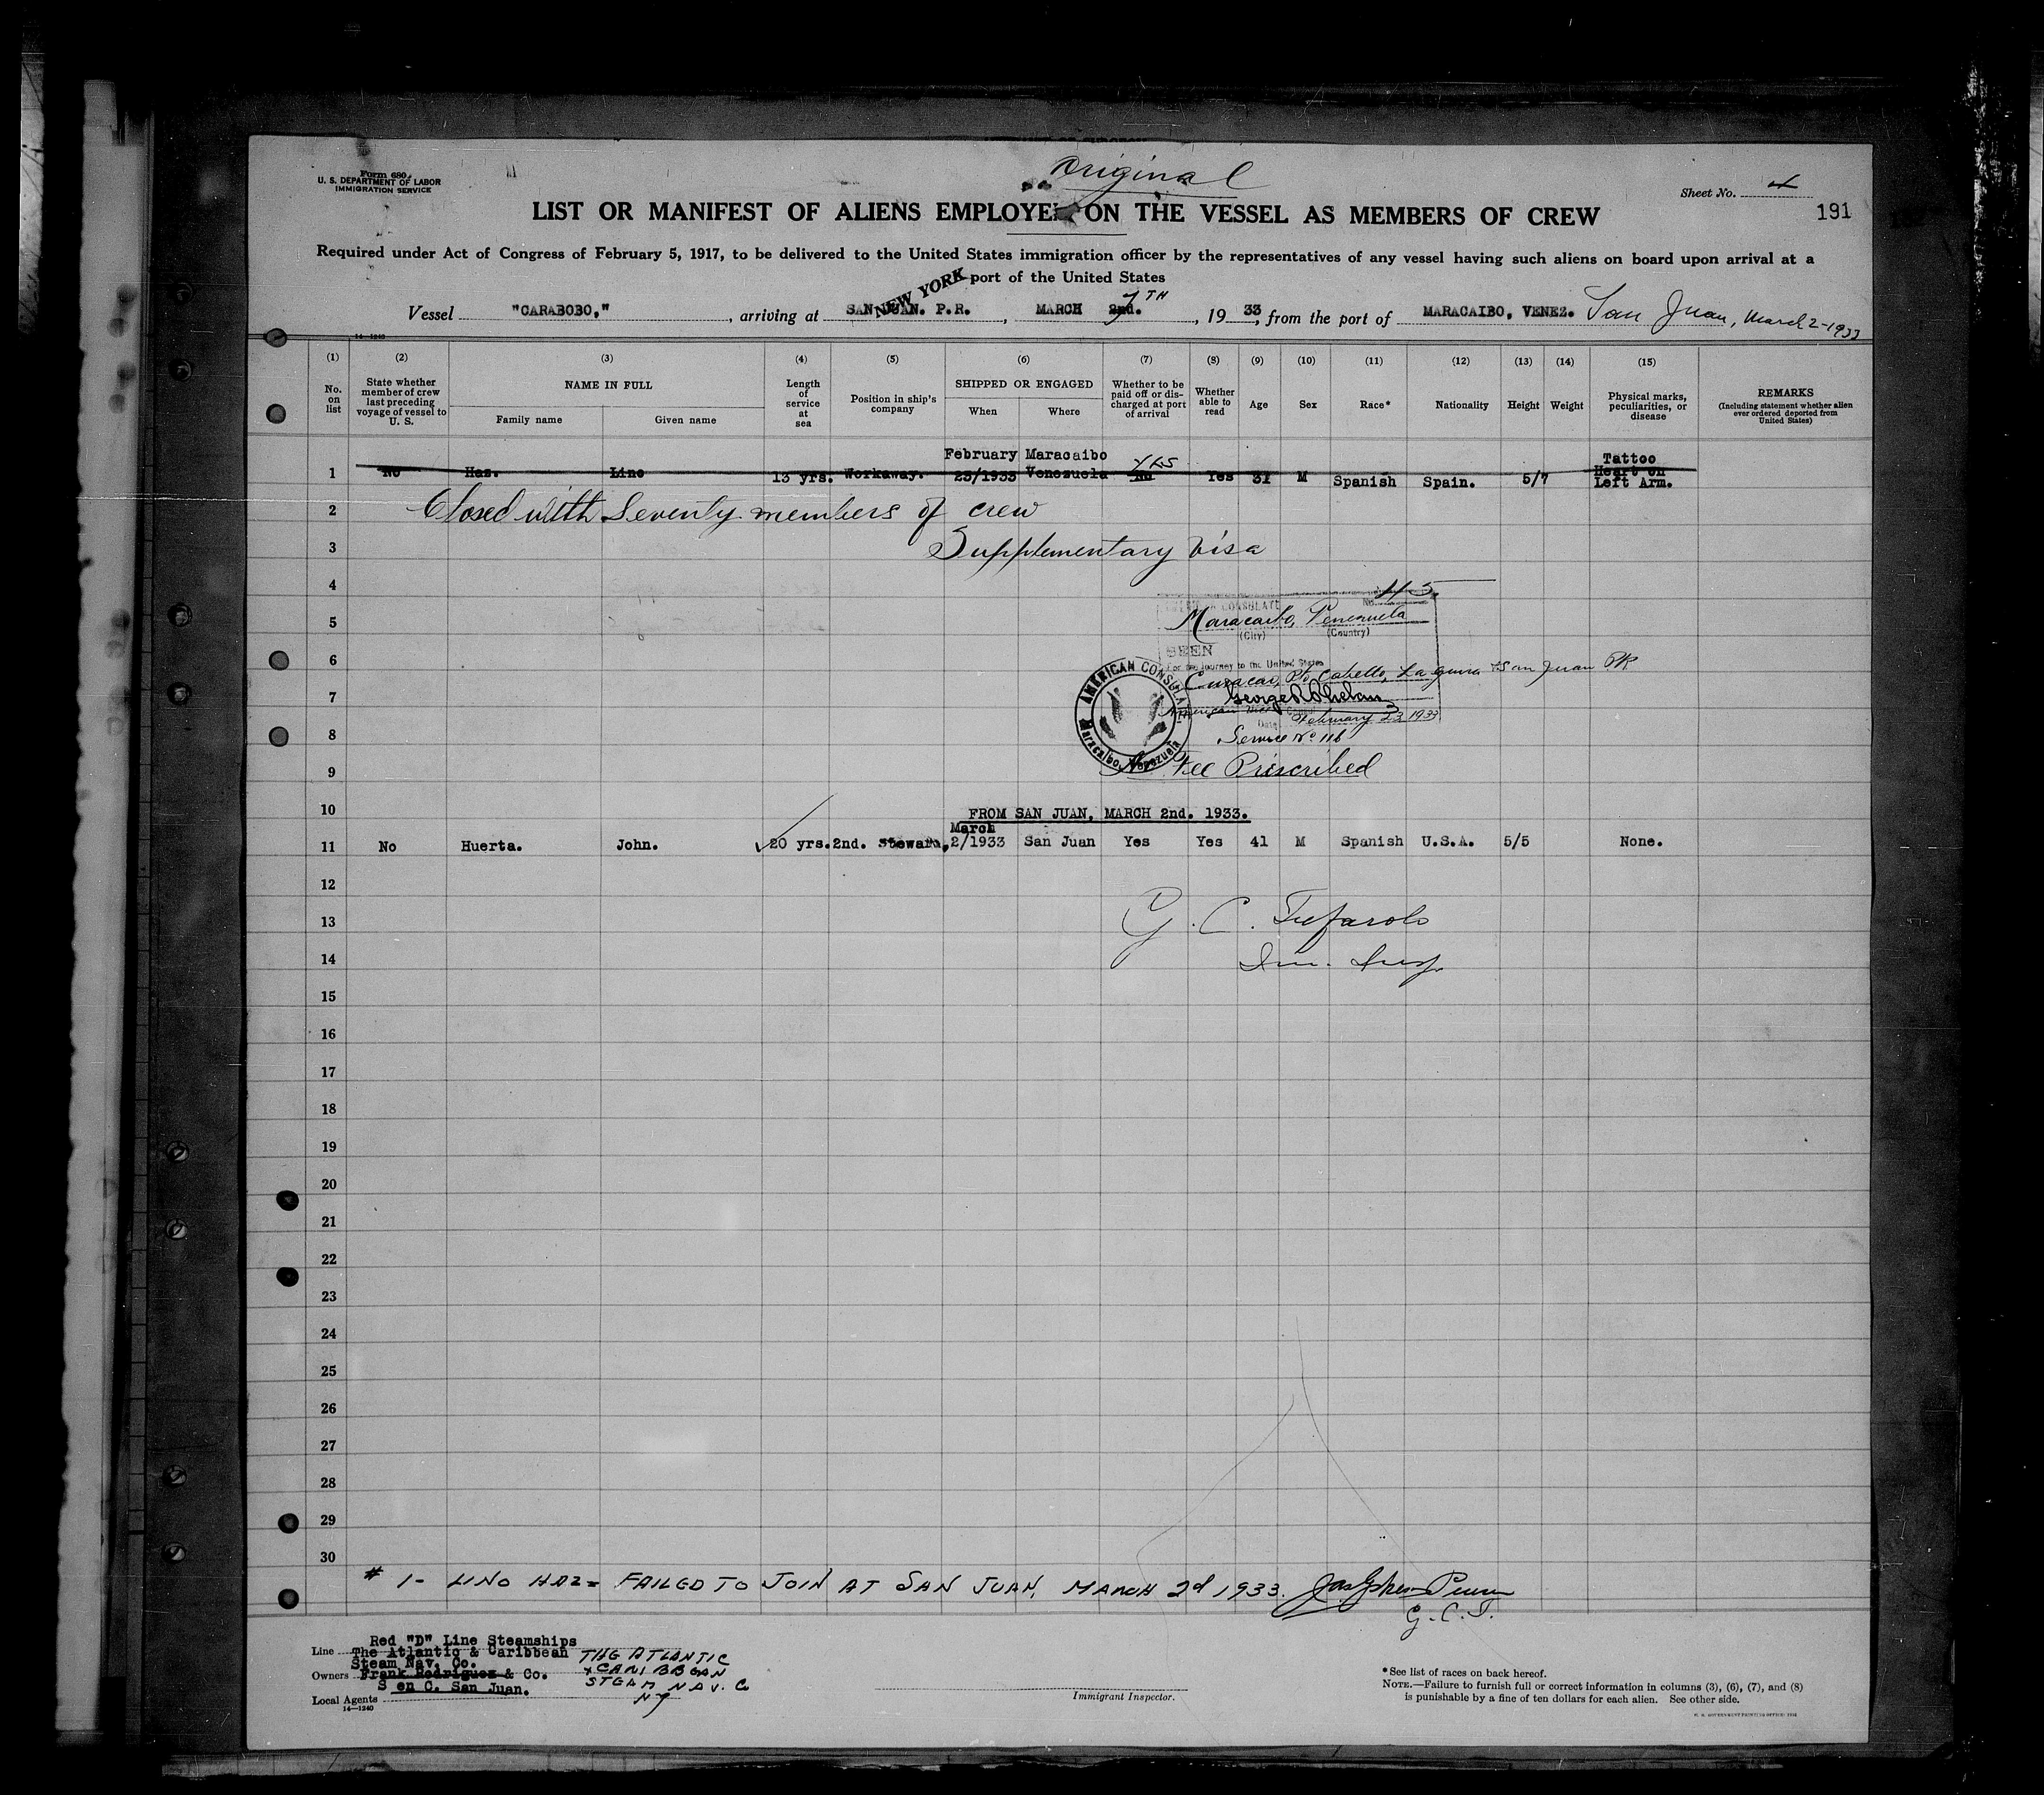 Original
Form 680
U. S. DEPARTMENT OF LABOR
IMMIGRATION SERVICE
Sheet No. 4
191
LIST OR MANIFEST OF ALIENS EMPLOYED ON THE VESSEL AS MEMBERS OF CREW
Required under Act of Congress of February 5, 1917, to be delivered to the United States immigration officer by the representatives of any vessel having such aliens on board upon arrival at a
port of the United States
NEW YORK
Vessel "CARABOBO," , arriving at SAN JUAN. P.R. , MARCH 2nd. 7TH , 19 33 , from the port of MARACAIBO, VENEZ. San Juan, March 2-1933
14-1240
(1) (2) (3) (4) (5) (6) (7) (8) (9) (10) (11) (12) (13) (14) (15)
No. on list
State whether member of crew last preceding voyage of vessel to U. S.
NAME IN FULL
Family name
Given name
Length of service at sea
Position in ship's company
SHIPPED OR ENGAGED
When
Where
Whether to be paid off or discharged at port of arrival
Whether able to read
Age
Sex
Race*
Nationality
Height
Weight
Physical marks, peculiarities, or disease
REMARKS
(Including statement whether alien ever ordered deported from United States)
1 No Haz. Lino 13 yrs. Workaway. February 23/1933 Maracaibo Venezuela No Yes Yes 31 M Spanish Spain. 5/7 Tattoo Heart on Left Arm.
2 Closed with Seventy members of crew
3 Supplementary Visa
4
No. 45
CONSULATE
5 Maracaibo, Venezuela
(City) (Country)
SEEN
For the journey to the United States
6 Curacao, Pto Cabello, La Guira San Juan PR
AMERICAN CONSULATE
Maracaibo, Venezuela
7
American Vice Consul
Date February 23 1933
8 Service No 116
9 No Fee Prescribed
10 FROM SAN JUAN, MARCH 2nd. 1933.
11 No Huerta. John. 20 yrs. 2nd. Steward, March 2/1933 San Juan Yes Yes 41 M Spanish U.S.A. 5/5 None.
12
13 G. C.
14 Imm. Insp.
15
16
17
18
19
20
21
22
23
24
25
26
27
28
29
30
# 1- LINO HAZ = FAILED TO JOIN AT SAN JUAN, MARCH 2d 1933.
G. C. T.
Red "D" Line Steamships
Line The Atlantic & Caribbean
Steam Nav. Co.
Owners Frank Rodriguez & Co.
S en C. San Juan.
Local Agents
14-1240
THE ATLANTIC
+ CARIBBEAN
STEAM NAV. Co
NY
Immigrant Inspector.
*See list of races on back hereof.
NOTE.—Failure to furnish full or correct information in columns (3), (6), (7), and (8)
is punishable by a fine of ten dollars for each alien. See other side.
U. S. GOVERNMENT PRINTING OFFICE